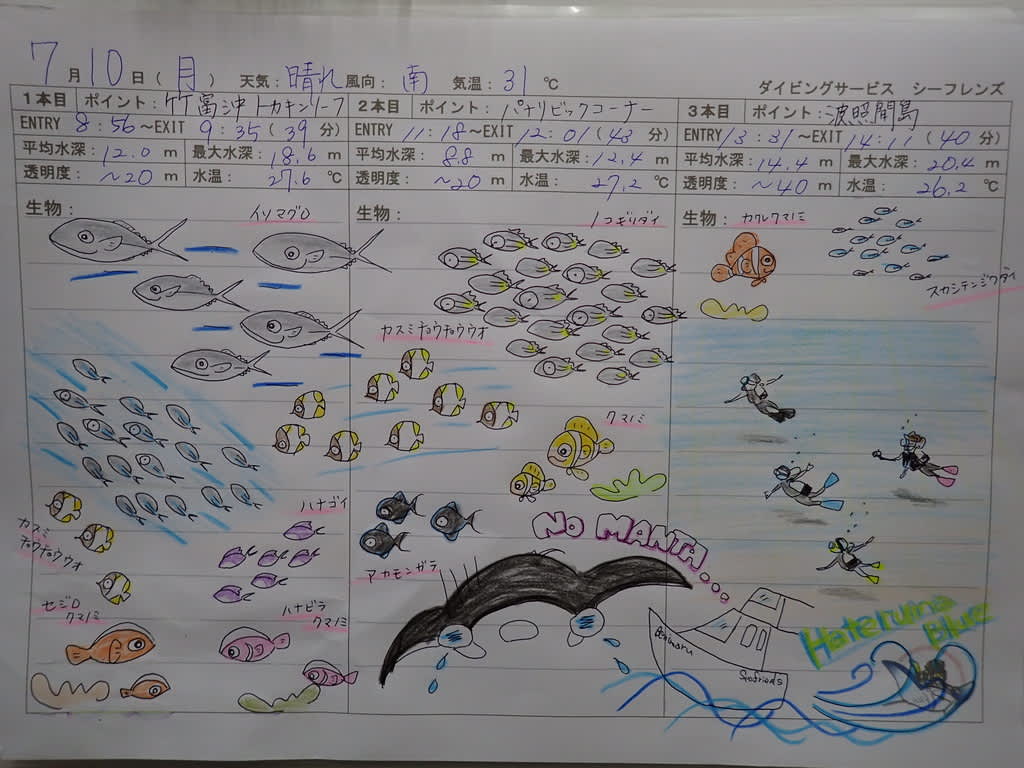 7月10日(月) 天気:晴れ 風向:南 気温:31℃
ダイビングサービス シーフレンズ
1本目 ポイント:竹富沖トカキンリーフ
ENTRY 8:56~EXIT 9:35(39分)
平均水深:12.0m 最大水深:18.6m
透明度:~20m 水温:27.6℃
生物:
イソマグロ
ハナゴイ
カスミチョウチョウウオ
セジロクマノミ
ハナビラクマノミ
2本目 ポイント:パナリビックコーナー
ENTRY 11:18~EXIT 12:01(43分)
平均水深:8.8m 最大水深:12.4m
透明度:~20m 水温:27.2℃
生物:
ノコギリダイ
カスミチョウチョウウオ
クマノミ
アカモンガラ
NO MANTA...
3本目 ポイント:波照間島
ENTRY 13:31~EXIT 14:11(40分)
平均水深:14.4m 最大水深:20.4m
透明度:~40m 水温:26.2℃
生物:
カクレクマノミ
スカシテンジクダイ
Hateruma
Blue
Seafriends